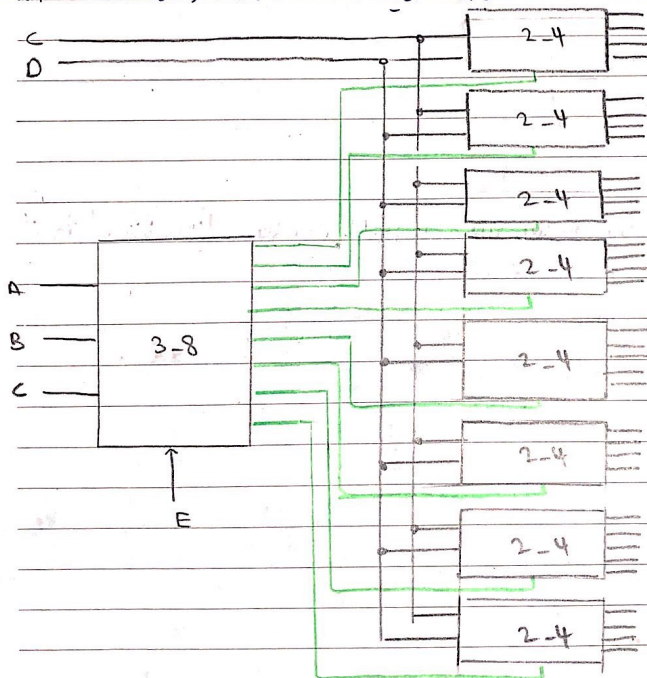 C
D
2-4
2-4
2-4
2-4
A
B
3-8
C
2-4
2-4
E
2-4
2-4